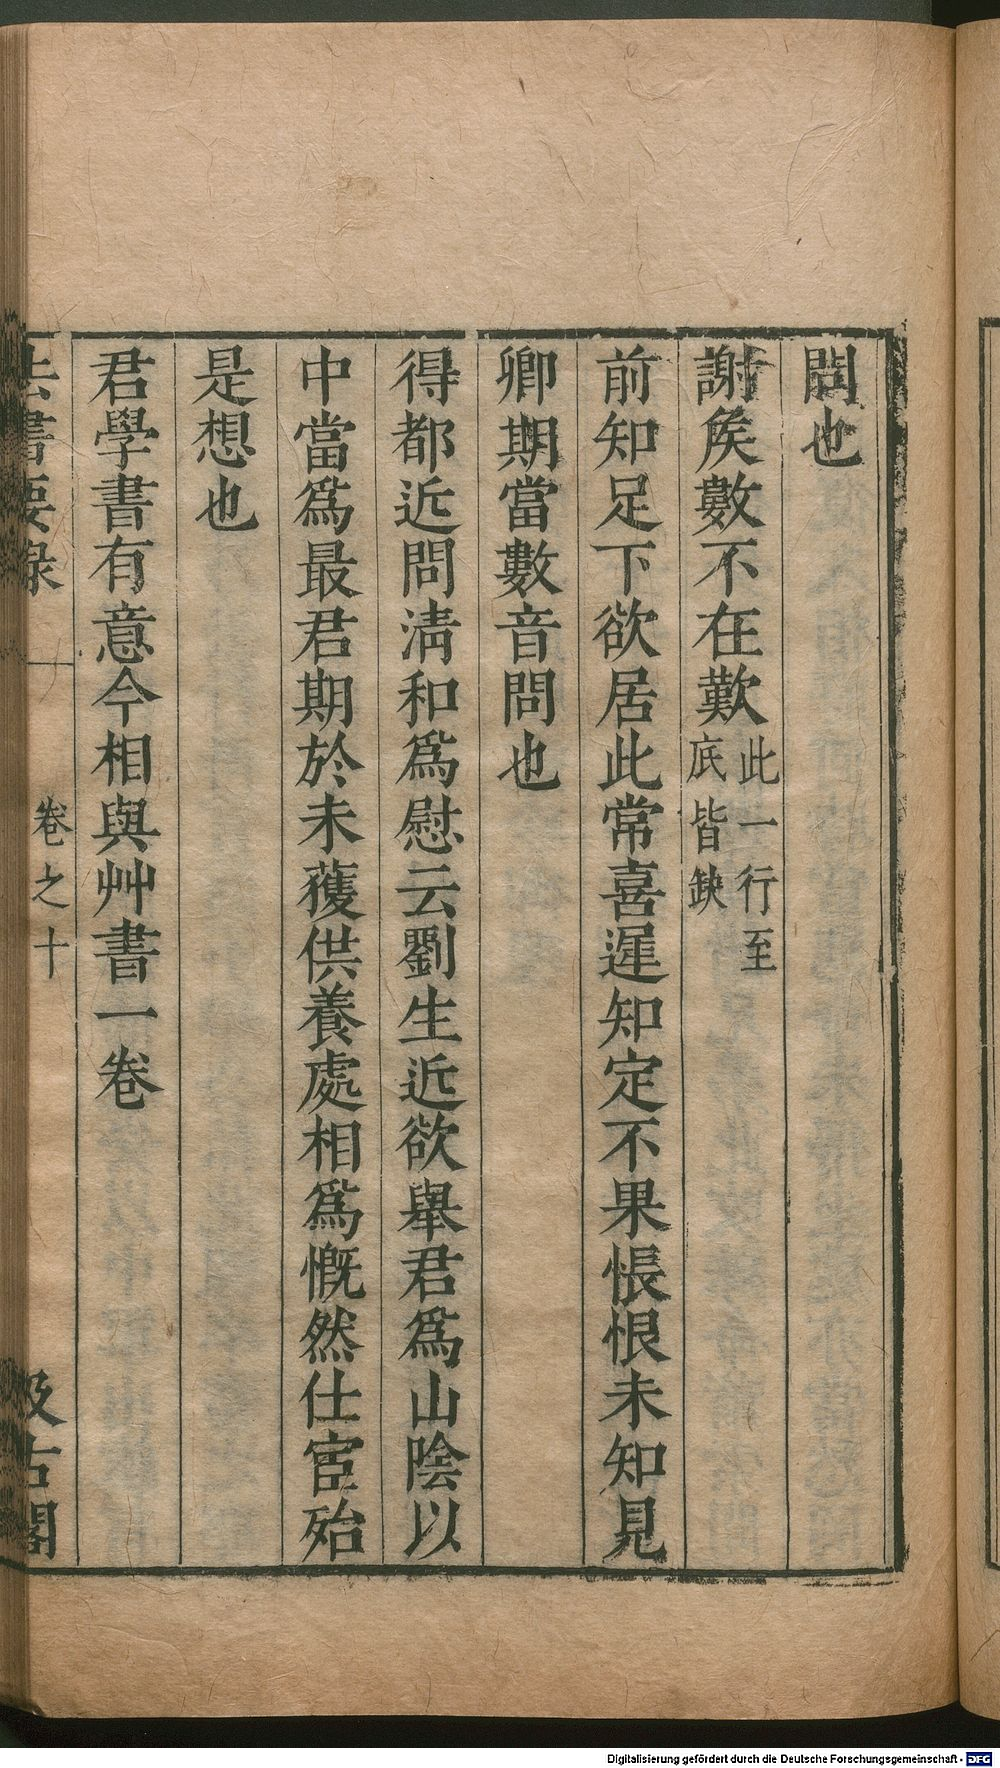 闊也
謝矦數不在歎此一行至底皆缺
前知足下欲居此常喜遲知定不果悵恨未知見
卿期當數音問也
得都近問淸和爲慰云劉生近欲舉君爲山陰以
中當爲最君期於未蒦供養處相爲慨然仕宦殆
是想也
君學書有意今相與艸書一卷
法書要錄
卷之十
汲古閣
Digitalisierung gefördert durch die Deutsche Forschungsgemeinschaft - DFG